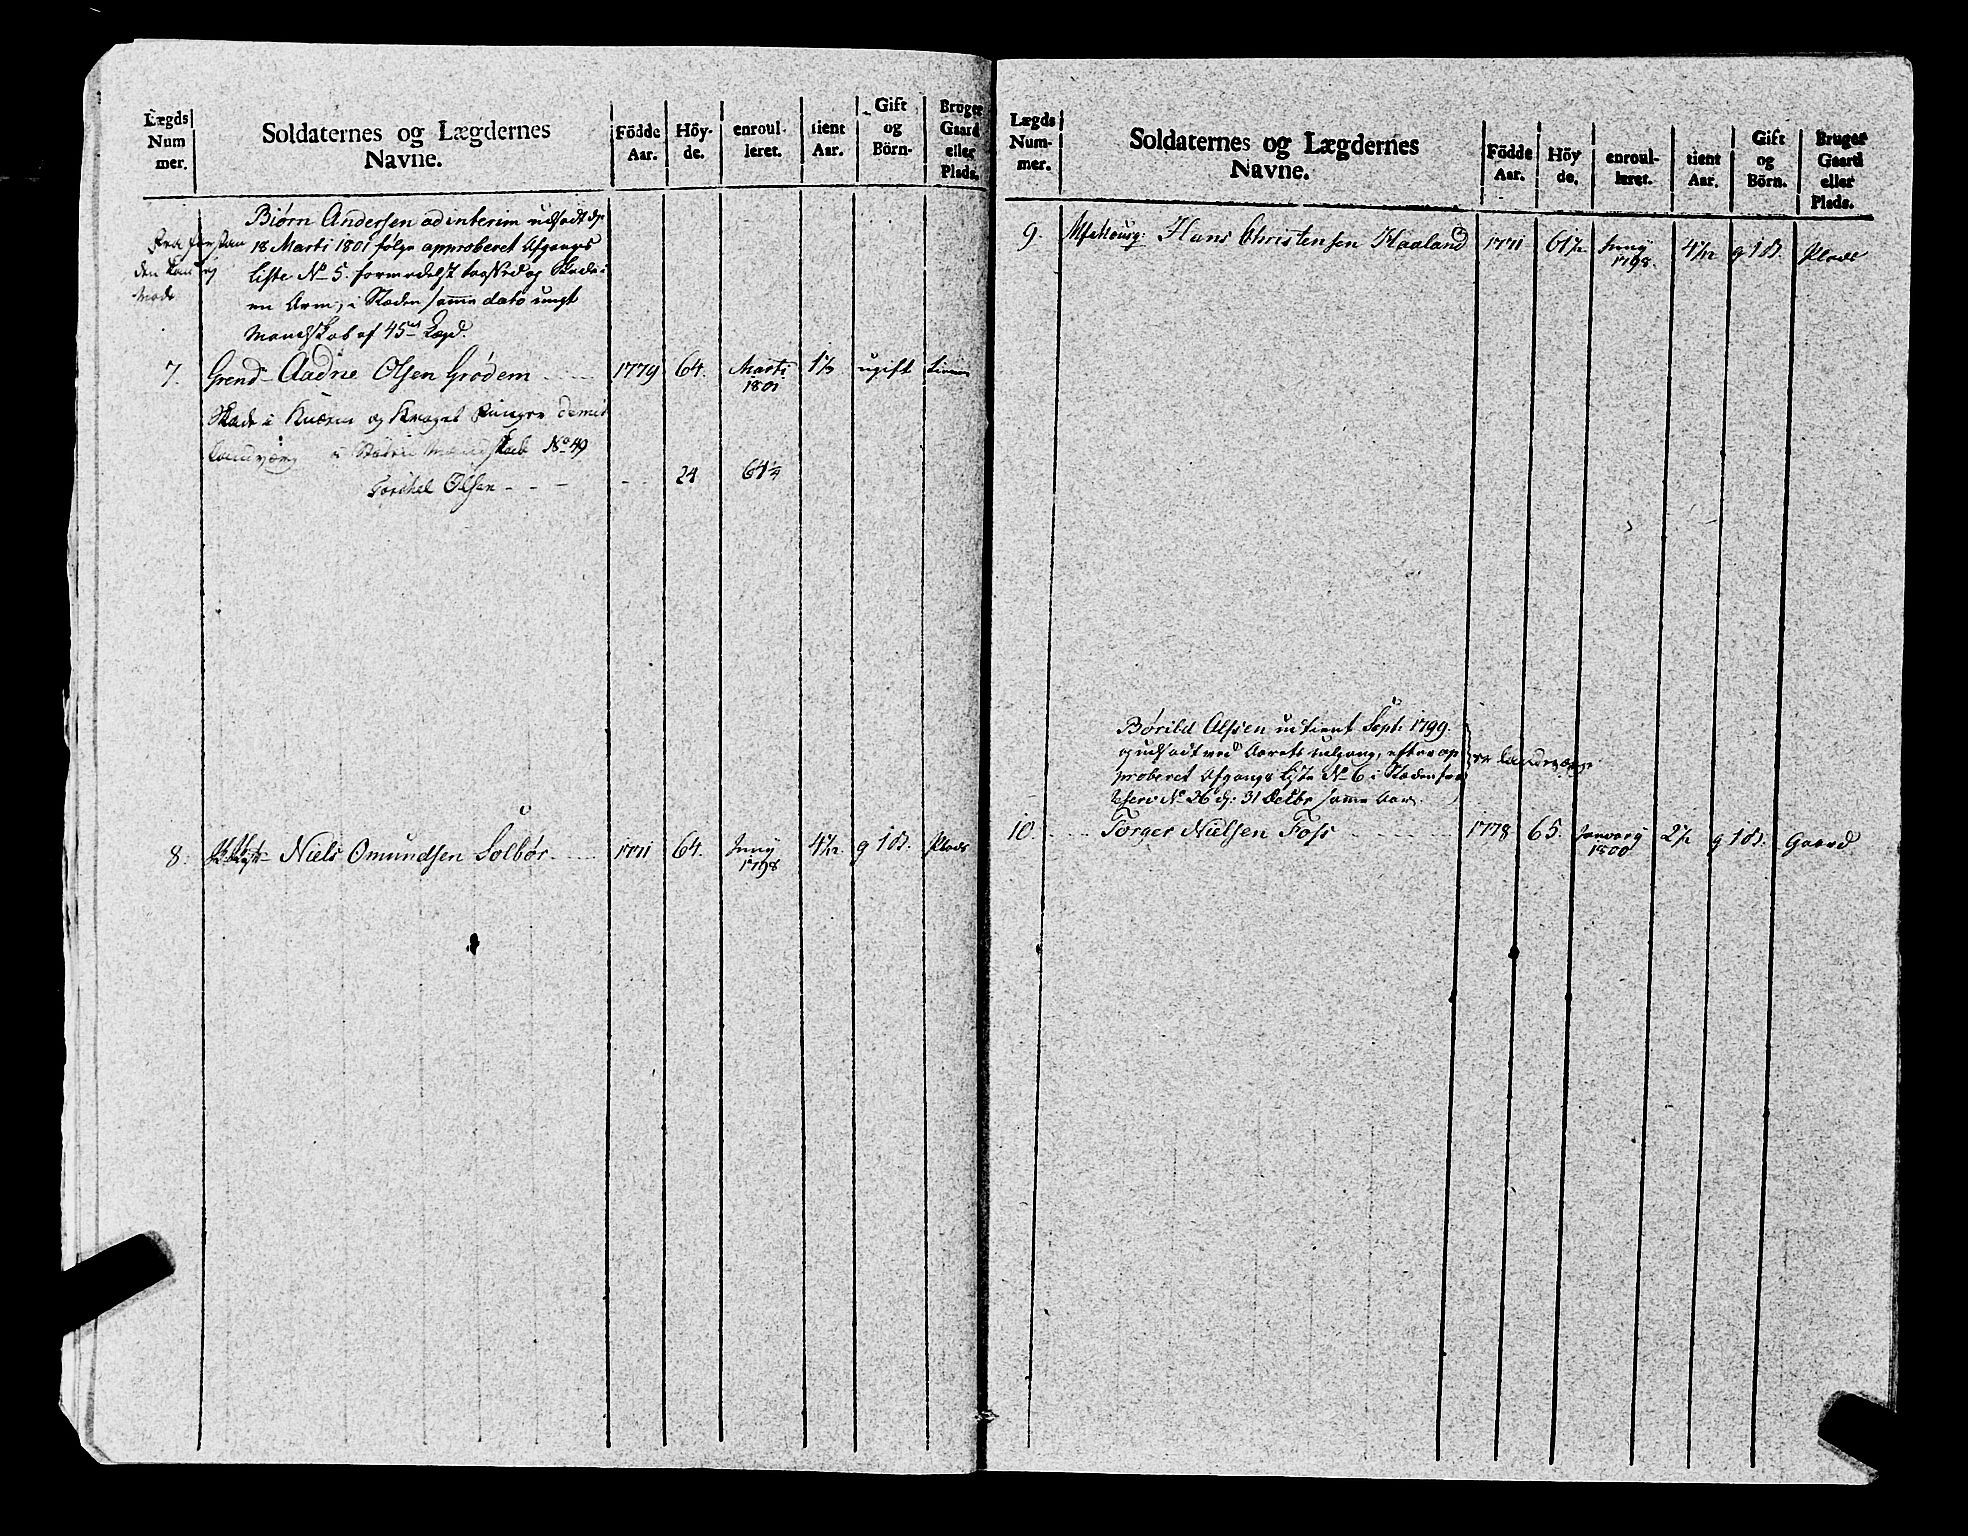 Lægds Nummer. Soldaternes og Lægdernes Navne. Födde Aar. Höyde. enroulleret. tient Aar. Gift og Börn. Bruger Gaard eller Plads.
Biørn Andersen ad interim udsadt dp
18 Marti 1801 følge approberet Afgangs
Liste No 5. formedelst Skade i
en Arm, i Staden samme dato ungt
Mandskab af 45 Lægd.
7. Grend Aadne Olsen Grødem 1779 64. Marti 1801 1 1/3 ugift
Skade i Knæene og Fingre
Landværg Mandskab No 49
Torchel Olsen 24 64 1/4
8. Niels Omundsen Solbør 1771 64. Juny 1798 4 1/12 g 1 B. Plads
Lægds Nummer. Soldaternes og Lægdernes Navne. Födde Aar. Höyde. enroulleret. tient Aar. Gift og Börn. Bruger Gaard eller Plads.
9. Hans Christensen Haaland 1771 61 1/2 Juny 1798. 4 1/12 g 1 B. Plads
Børild Olssen udtient Sept: 1799.
og udsadt ved Aarets udgang, efter ap
proberet Afgangs Liste No 6 i Staden
No 26 d: 31 Decbr samme Aar.
10. Torger Nielsen Foss 1778 65. January 1800 2 1/2 g 1 B. Gaard